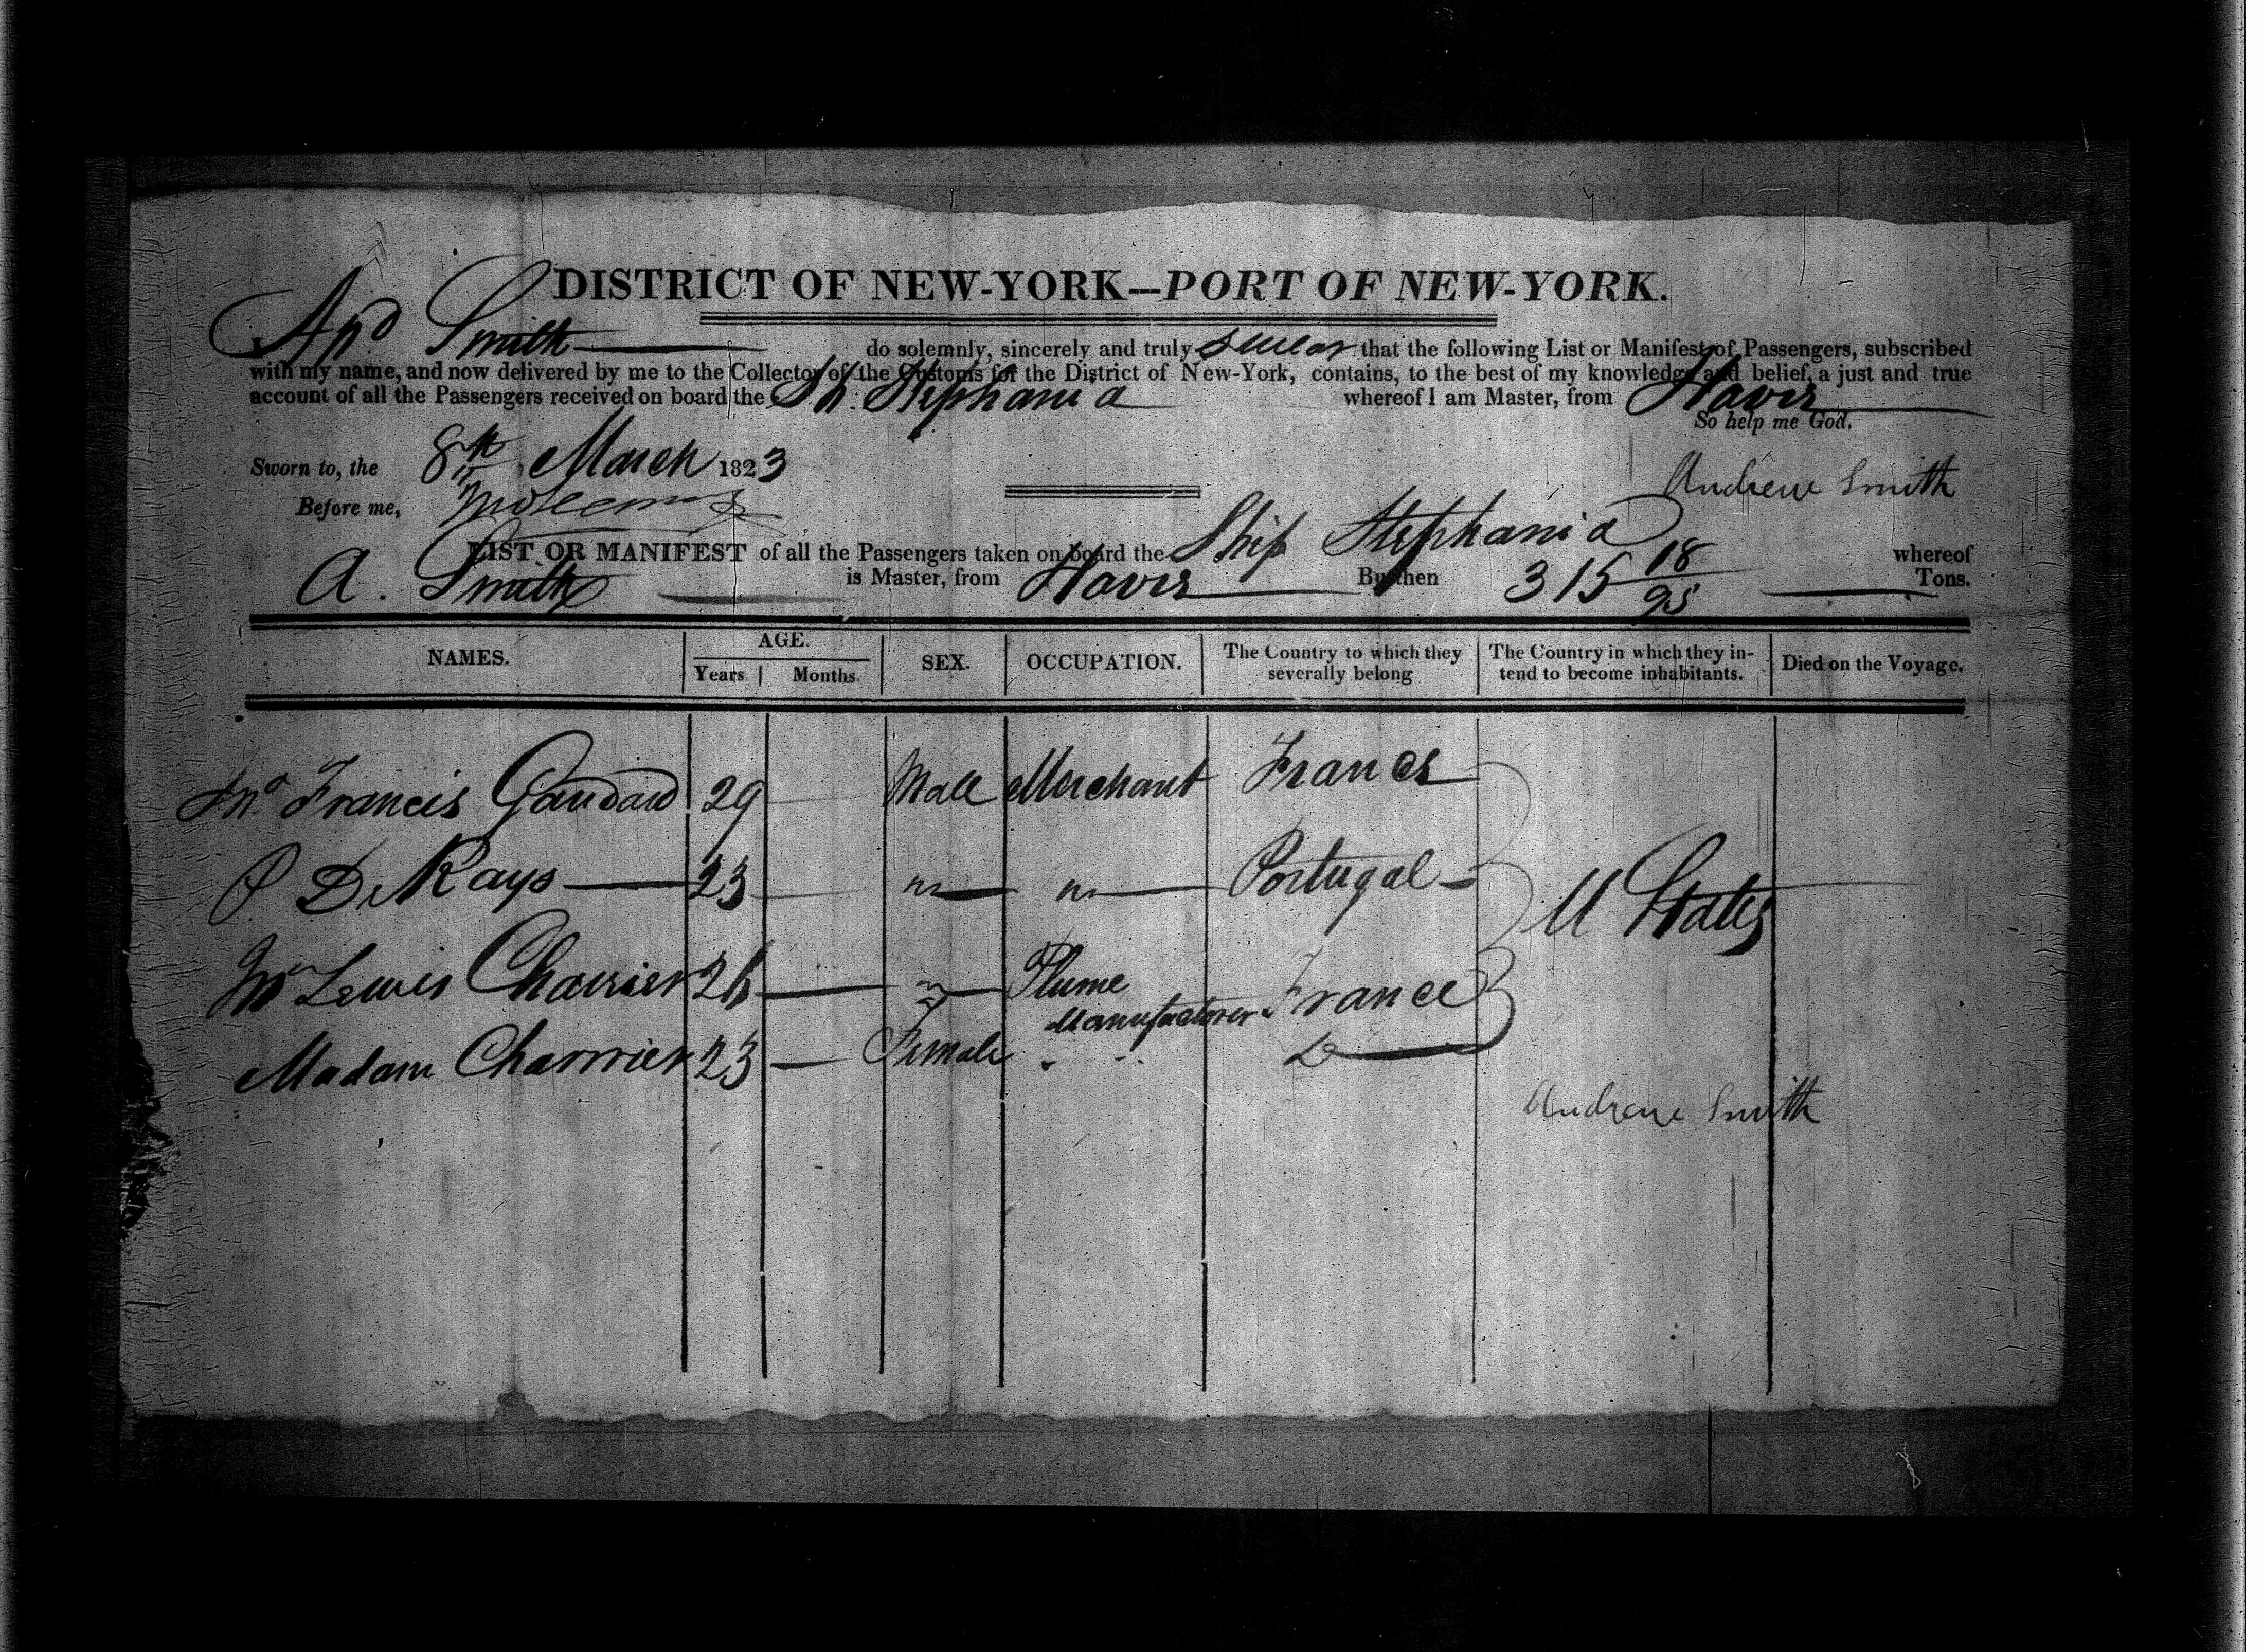 DISTRICT OF NEW-YORK—PORT OF NEW-YORK.
And Smith do solemnly, sincerely and truly swear that the following List or Manifest of Passengers, subscribed
with my name, and now delivered by me to the Collector of the Customs for the District of New-York, contains, to the best of my knowledge and belief, a just and true
account of all the Passengers received on board the Sh. Stephania whereof I am Master, from Havre
So help me God.
Sworn to, the 8th March 1823
Andrew Smith
Before me,
LIST OR MANIFEST of all the Passengers taken on board the Ship Stephania whereof
A. Smith is Master, from Havre Burthen 315 18/95 Tons.
NAMES. AGE. Years Months. SEX. OCCUPATION. The Country to which they severally belong The Country in which they intend to become inhabitants. Died on the Voyage.
Francis 29 Male Merchant France
P De Rays 23 " " Portugal
U States
Mr Lewis Charrier 26 " Plume Manufacturer France
Madam Charrier 23 Female " " Do
Andrew Smith